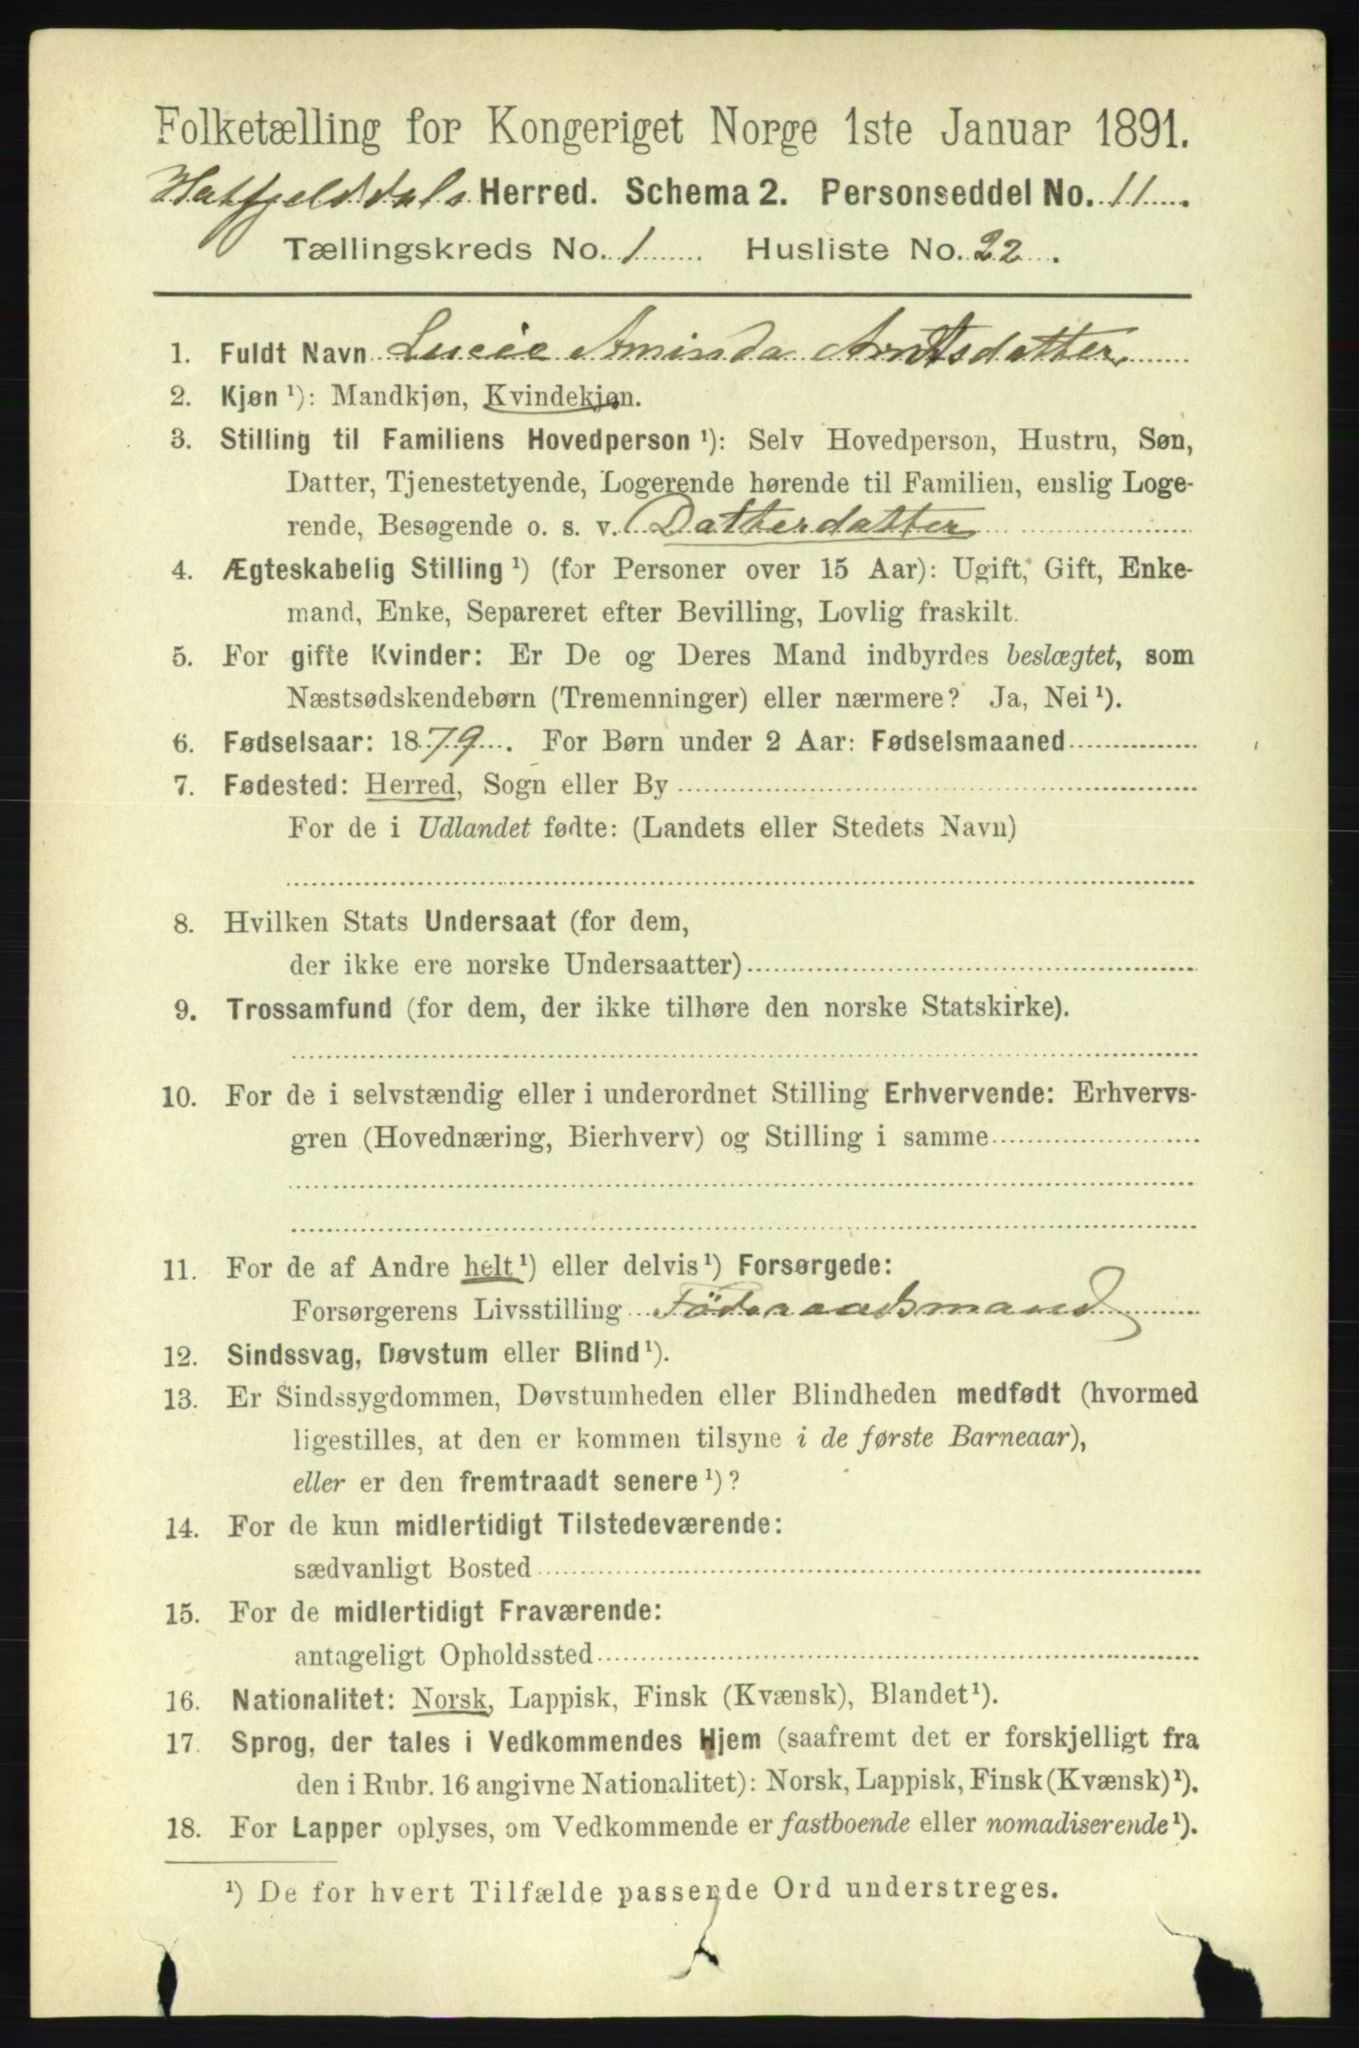 Folketælling for Kongeriget Norge 1ste Januar 1891.
Hatfjelddals Herred. Schema 2. Personseddel No. 11.
Tællingskreds No. 1 Husliste No. 22.
1. Fuldt Navn Lucie Aminda Arntsdatter
2. Kjøn ¹): Mandkjøn, Kvindekjøn.
3. Stilling til Familiens Hovedperson ¹): Selv Hovedperson, Hustru, Søn,
Datter, Tjenestetyende, Logerende hørende til Familien, enslig Loge-
rende, Besøgende o. s. v. Datterdatter
4. Ægteskabelig Stilling ¹) (for Personer over 15 Aar): Ugift, Gift, Enke-
mand, Enke, Separeret efter Bevilling, Lovlig fraskilt.
5. For gifte Kvinder: Er De og Deres Mand indbyrdes beslægtet, som
Næstsødskendebørn (Tremenninger) eller nærmere? Ja, Nei ¹).
6. Fødselsaar: 1879. For Børn under 2 Aar: Fødselsmaaned
7. Fødested: Herred, Sogn eller By
For de i Udlandet fødte: (Landets eller Stedets Navn)
8. Hvilken Stats Undersaat (for dem,
der ikke ere norske Undersaatter)
9. Trossamfund (for dem, der ikke tilhøre den norske Statskirke).
10. For de i selvstændig eller i underordnet Stilling Erhvervende: Erhvervs-
gren (Hovednæring, Bierhverv) og Stilling i samme
11. For de af Andre helt ¹) eller delvis ¹) Forsørgede:
Forsørgerens Livsstilling Föderaadsmand
12. Sindssvag, Døvstum eller Blind ¹).
13. Er Sindssygdommen, Døvstumheden eller Blindheden medfødt (hvormed
ligestilles, at den er kommen tilsyne i de første Barneaar),
eller er den fremtraadt senere ¹)?
14. For de kun midlertidigt Tilstedeværende:
sædvanligt Bosted
15. For de midlertidigt Fraværende:
antageligt Opholdssted
16. Nationalitet: Norsk, Lappisk, Finsk (Kvænsk), Blandet ¹).
17. Sprog, der tales i Vedkommendes Hjem (saafremt det er forskjelligt fra
den i Rubr. 16 angivne Nationalitet): Norsk, Lappisk, Finsk (Kvænsk) ¹).
18. For Lapper oplyses, om Vedkommende er fastboende eller nomadiserende ¹).
¹) De for hvert Tilfælde passende Ord understreges.